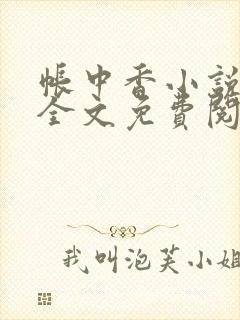 帐中香小说
全文免费阅
我叫泡芙小姐